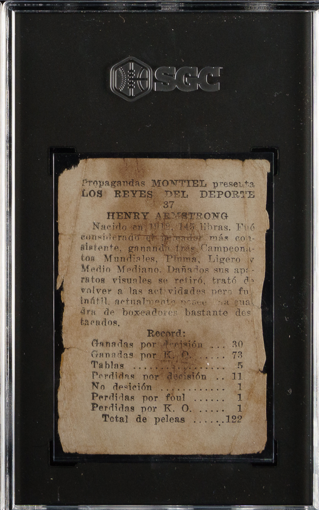 SGC
Propagandas MONTIEL presenta
LOS REYES DEL DEPORTE
37
HENRY ARMSTRONG
Nacido en 147 libras. Fué
considerado peleador más con-
sistente, ganando tres Campeona-
tos Mundiales, Pluma, Ligero y
Medio Mediano. Dañados sus apa-
ratos visuales se retiró, trató de
volver a las actividades pero fu
inútil, actualmente posee su cua
dra de boxeadores bastante des
tacados.
Record:
Ganadas por decisión ... 30
Ganadas por K. O. ..... 73
Tablas ............... 5
Perdidas por decisión .. 11
No desición ........... 1
Perdidas por foul ..... 1
Perdidas por K. O. ..... 1
Total de peleas ......122